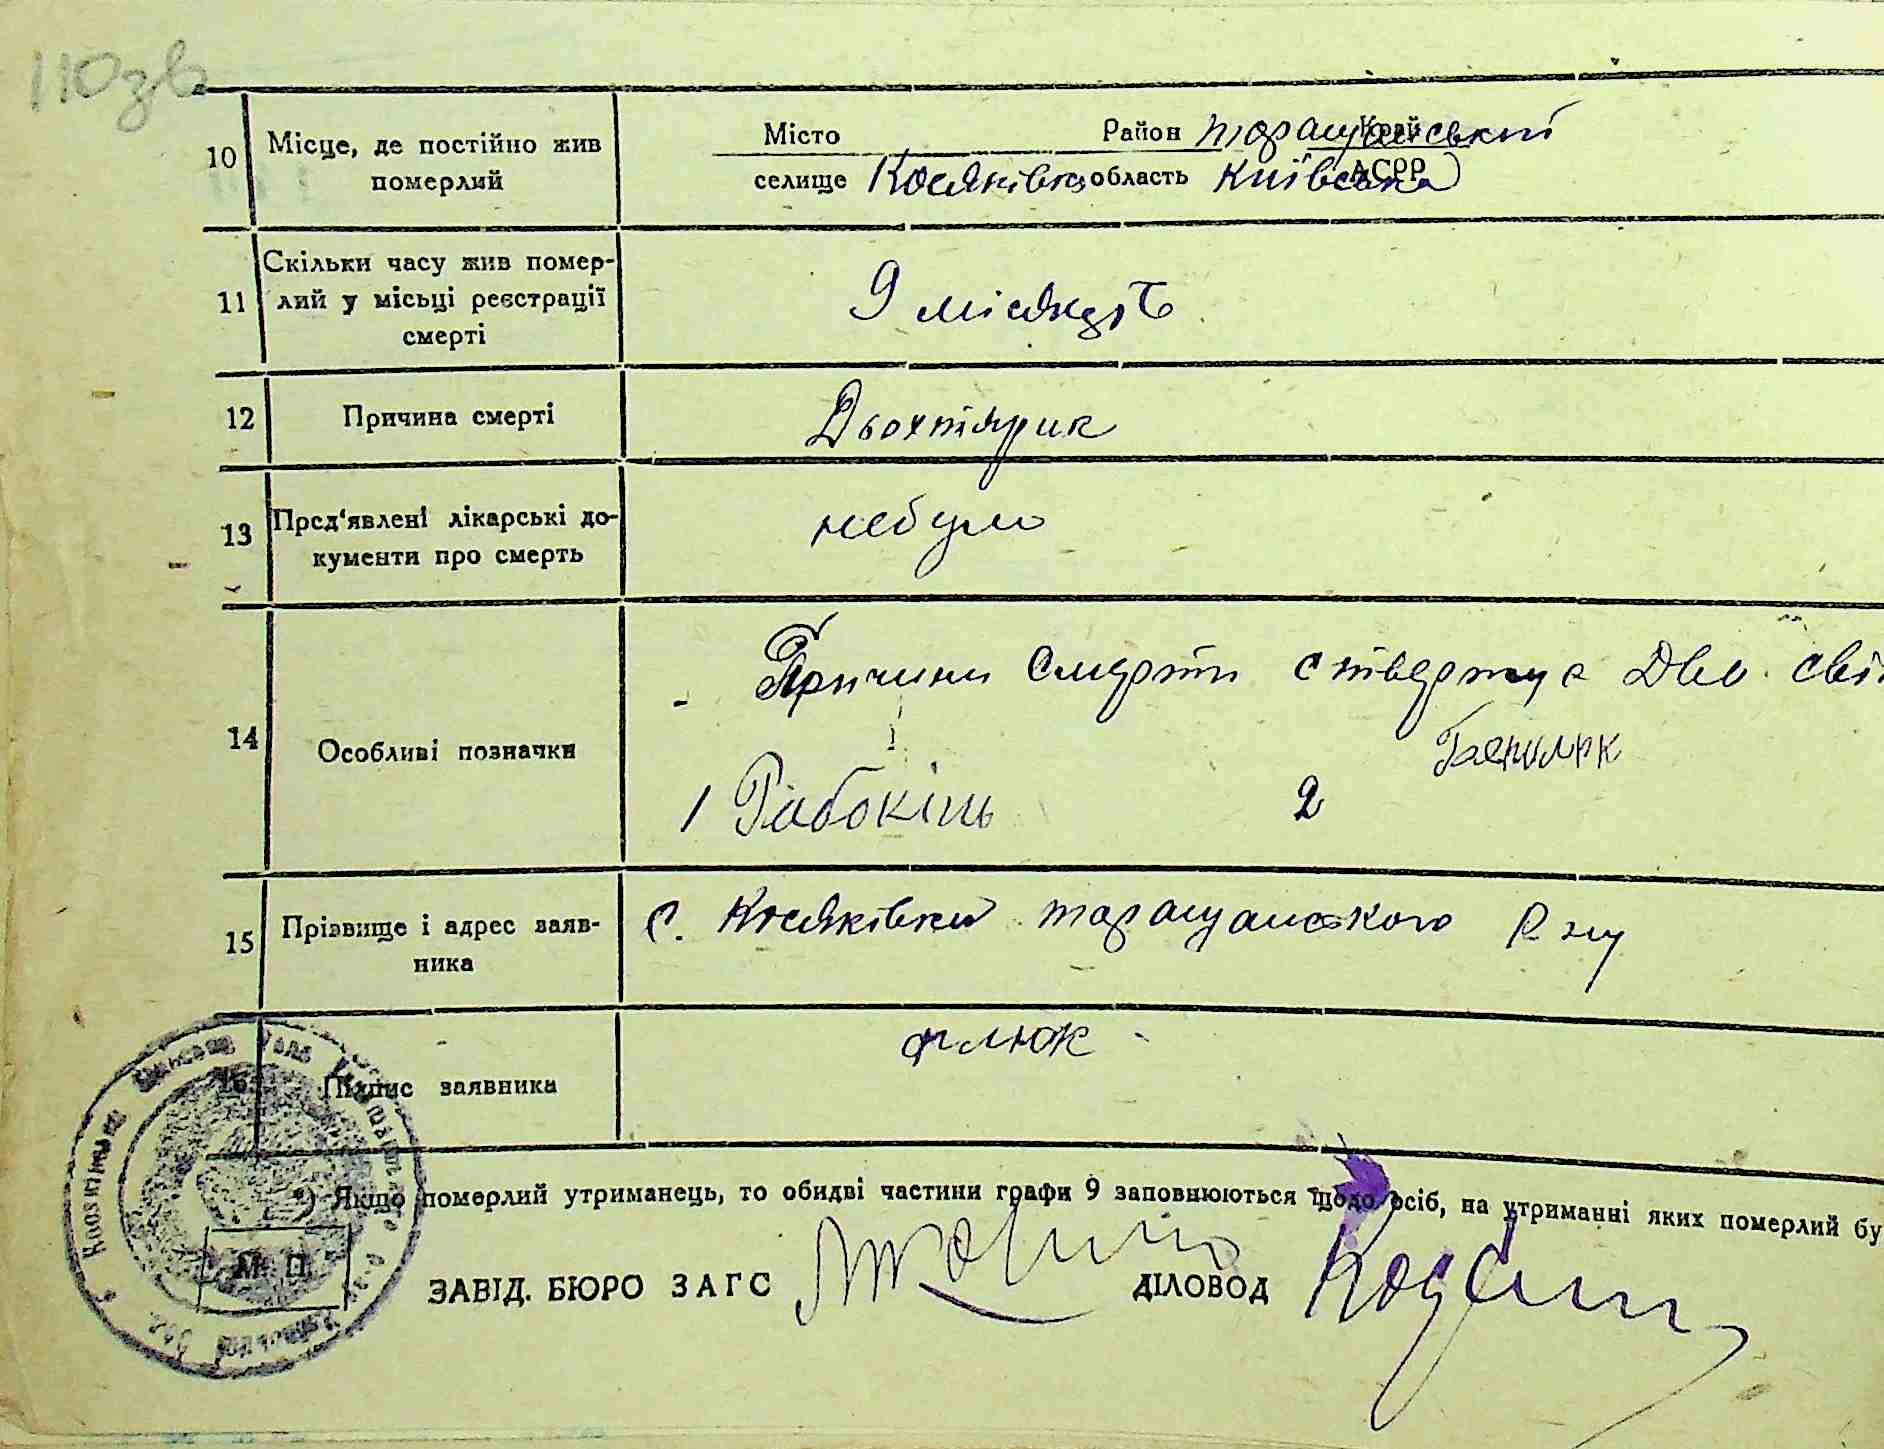 110зв
10 Місце, де постійно жив померлий
Місто Район Таращанський Край
селище Косяківка область Київська АСРР
11 Скільки часу жив помер-
лий у місьці реєстрації
смерті
9 місяцять
12 Причина смерті
Дьохтярик
13 Пред'явлені лікарські до-
кументи про смерть
небуло
14 Особливі позначки
Причини смерти стверджує Дво. сві
1 Рабокінь 2
15 Прізвище і адрес заяв-
ника
с. Косяківки таращанського Р-ну
16 Підпис заявника
флюк
*) Якщо померлий утриманець, то обидві частини графи 9 заповнюються щодо осіб, на утриманні яких померлий бу
М. П.
ЗАВІД. БЮРО ЗАГС ДІЛОВОД